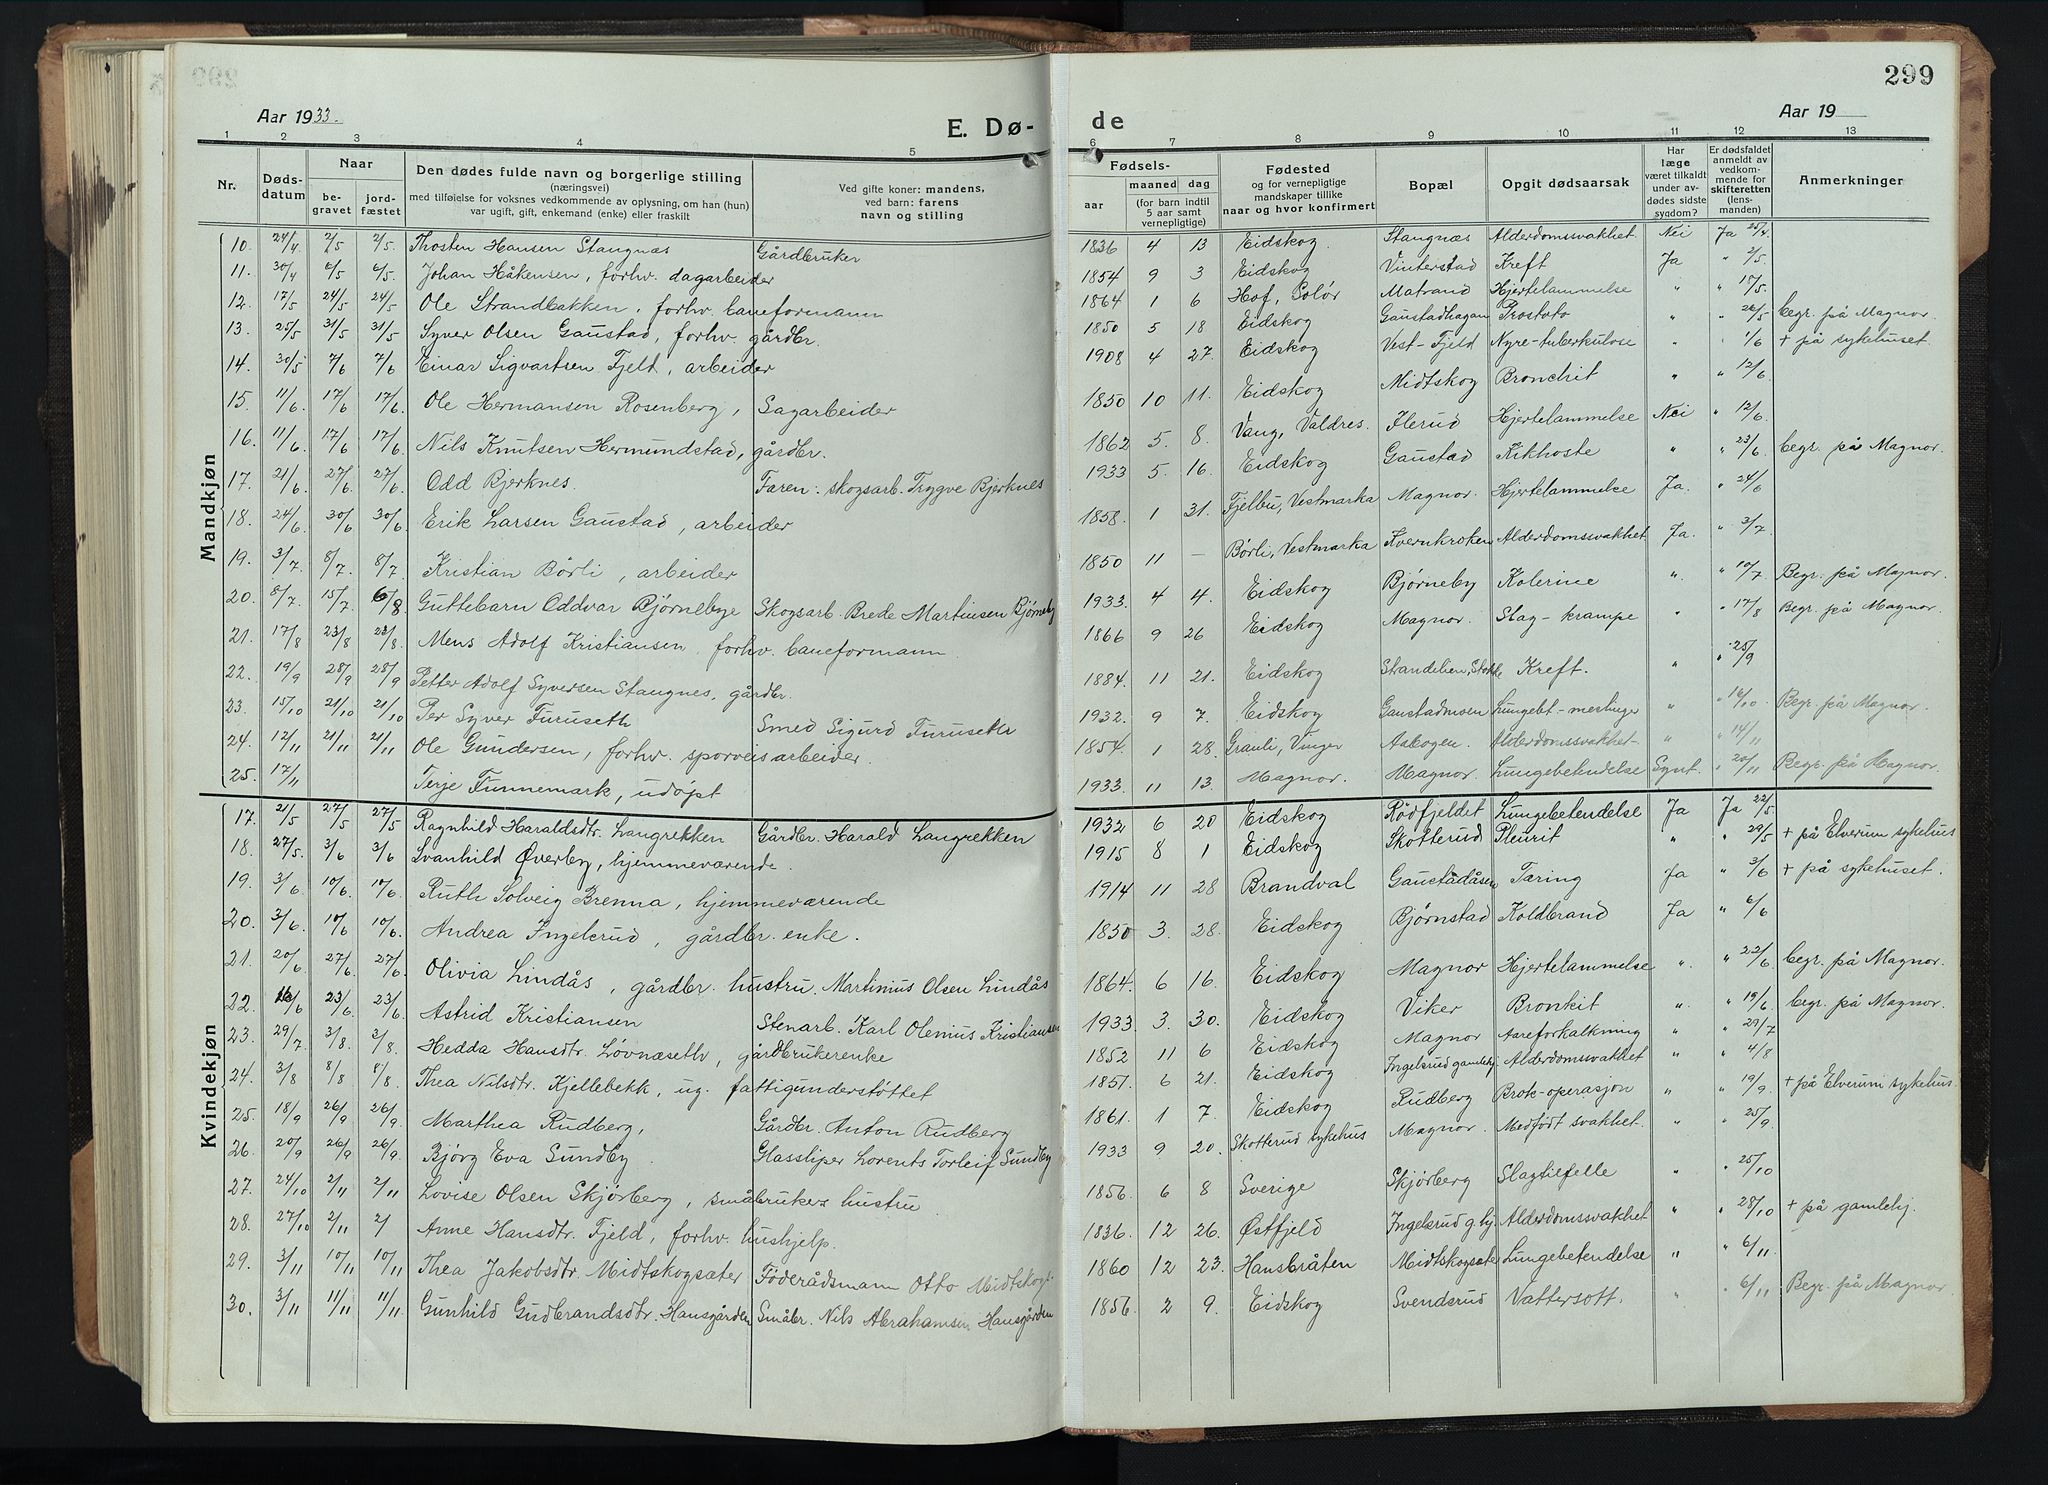 299
Aar 1933.
E. Dø-
de
Aar 19
1 2 3 4 5 6 7 8 9 10 11 12 13
Nr.
Døds-
datum
Naar
be-
gravet
jord-
fæstet
Den dødes fulde navn og borgerlige stilling
(næringsvei)
med tilføielse for voksnes vedkommende av oplysning, om han (hun)
var ugift, gift, enkemand (enke) eller fraskilt
Ved gifte koner: mandens,
ved barn: farens
navn og stilling
Fødsels-
aar
maaned
dag
(for barn indtil
5 aar samt
vernepligtige)
Fødested
og for vernepligtige
mandskaper tillike
naar og hvor konfirmert
Bopæl
Opgit dødsaarsak
Har
læge
været tilkaldt
under av-
dødes sidste
sygdom?
Er dødsfaldet
anmeldt av
vedkom-
mende for
skifteretten
(lens-
manden)
Anmerkninger
Mandkjøn
10. 24/4 2/5 2/5. Thosten Hansen Stangnæs Gårdbruker 1836 4 13 Eidskog. Stangnæs Alderdomssvakhet. Nei Ja 25/4.
11. 30/4 6/5 6/5. Johan Håkensen, forhv. dagarbeider 1854 9 3 Eidskog Vinterstad Kreft Ja " 2/5.
12. 17/5 24/5 24/5 Ole Strandbakken, forhv. baneformann 1864 1 6 Hof, Solør Matrand Hjertelammelse " " 17/5.
13. 25/5 31/5 31/5 Syver Olsen Gaustad, forhv. gårdbr. 1850 5 18 Eidskog Gaustadhagan Prostata " " 26/5 begr. på Magnor.
14. 30/5 7/6 7/6 Einar Sigvartsen Fjelt, arbeider 1908 4 27. Eidskog Vest-Fjeld Nyre-tuberkulose " " 1/6 + på sykehuset.
15. 11/6 17/6 17/6. Ole Hermansen Rosenberg, Sagarbeider 1850 10 11. Eidskog Midtskog Bronchit " " 12/6
16. 11/6 17/6 17/6 Nils Knutsen Hermundstad, gårdbr. 1862 5. 8. Vang, Valdres. Ilerud Hjertelammelse Nei " 12/6.
17. 21/6 27/6 27/6. Odd Bjerknes. Faren: skogsarb. Trygve Bjerknes 1933 5. 16. Eidskog Gaustad Kikhoste " " 23/6 begr. på Magnor.
18. 24/6. 30/6 30/6 Erik Larsen Gaustad, arbeider 1858. 1 31. Fjelbu, Vestmarka Magnor. Hjertelammelse Ja. " 24/6
19. 3/7. 8/7 8/7 Kristian Børli, arbeider 1850 11 — Børli, Vestmarka Kvernkroken Alderdomssvakhet Ja. " 3/7
20. 8/7. 15/7 6/8 Guttebarn Oddvar Bjørnebye Skogsarb. Brede Martinsen Bjørneby 1933. 4 4. Eidskog Bjørneby Kolerine " " 10/7 Begr. på Magnor.
21. 17/8 23/8 23/8. Mens Adolf Kristiansen, forhv. baneformann. 1866 9 26 Eidskog Magnor. Slag-krampe " " 17/8 Begr. på Magnor.
22. 19/9 28/9 28/9 Petter Adolf Syversen Stangnes, gårdbr. 1884. 11 21. Eidskog Kreft. " " 25/9
23. 15/10 21/10 21/10 Per Syver Furuseth Smed Sigurd Furuseth 1932. 9 7. Eidskog Gaustadmoen Lungebet-meslinger " " 16/10 Begr. på Magnor.
24. 12/11 21/11 21/11 Ole Gundersen, forhv. sporveisarbeider. 1854. 1 28. Grauli, Vinger Aabogen. Alderdomssvakhet- " " 14/11
25. 17/11 Terje Funnemark, udøpt 1933. 11 13. Magnor. Magnor. Lungebetendelse " 20/11 Begr. på Magnor.
Kvindekjøn
17. 21/5 27/5 27/5 Ragnhild Haraldsdtr. Langrekken Gårdbr. Harald Langrekken 1932 6 20 Eidskog Rödfjeldet Lungebetendelse Ja Ja 22/5.
18. 27/5. 3/6 3/6 Svanhild Øverby, hjemmeværende. 1915 8 1 Eidskog Skotterud Pleurit " " 29/5 + på Elverum sykehus
19. 3/6 10/6. 10/6. Ruth Solveig Brenna, hjemmeværende 1914 11 28 Brandval Gaustadåsen Tæring Ja " 3/6 + på sykehuset.
20. 3/6. 10/6 10/6. Andrea Ingelsrud, gårdbr. enke. 1850 3. 28. Eidskog Bjørnstad Koldbrand Ja " 6/6
21. 20/6 27/6. 27/6 Olivia Lindås, gårdbr. hustru. Martinius Olsen Lindås 1864. 6 16. Eidskog Magnor Hjertelammelse " " 22/6 begr. på Magnor.
22. 16/6 23/6. 23/6. Astrid Kristiansen Stenarb. Karl Olenius Kristiansen 1933. 3. 30. Eidskog Viker Bronkit " " 19/6 begr. på Magnor.
23. 29/7 3/8. 3/8. Hedda Hansdtr. Løvnæseth, gårdbrukerenke 1852 11 6 Eidskog Magnor Aareforkalkning " " 29/7
24. 3/8 8/8 8/8. Thea Nilsdtr. Kjellebekk, ug. fattigunderstøttet 1851. 6 21. Eidskog Ingelsrud gamlehj. Alderdomssvakhet " " 4/8
25. 18/9 26/9 26/9. Marthea Rudberg, Gårdbr. Anton Rudberg 1861. 1 7. Eidskog Rudberg Brok-operasjon " " 19/9. + på Elverum sykehus.
26. 20/9 26/9 26/9. Bjørg Eva Sundby. Glassliper Lorents Torleif Sundby 1933 9 20. Skotterud sykehus Magnor. Medfødt svakhet. " " 25/9.
27. 24/10 2/11 2/11 Lovise Olsen Skjørberg, småbrukers hustru 1856. 6 8 Sverige Skjørberg Slagtilfelle " " 25/10
28. 27/10 2/11 2/ Anne Hansdtr. Fjeld, forhv. hushjelp. 1836. 12 26. Østfjeld Ingelsrud g.hj. Alderdomssvakhet " " 28/10 + på gamlehj.
29. 3/11 10/11 10/11 Thea Jakobsdtr. Midtskogsæter Föderådsmann Otto Midtskogs- 1860 12 23. Hansbråten Midtskogsæter Lungebetendelse " " 6/11.
30. 3/11 11/11 11/11 Gunhild Gudbrandsdtr. Hansgården Småbr. Nils Abrahamsen Hansgården 1856. 2 9. Eidskog Svendsrud Vattersott. " " 6/11 Begr. på Magnor